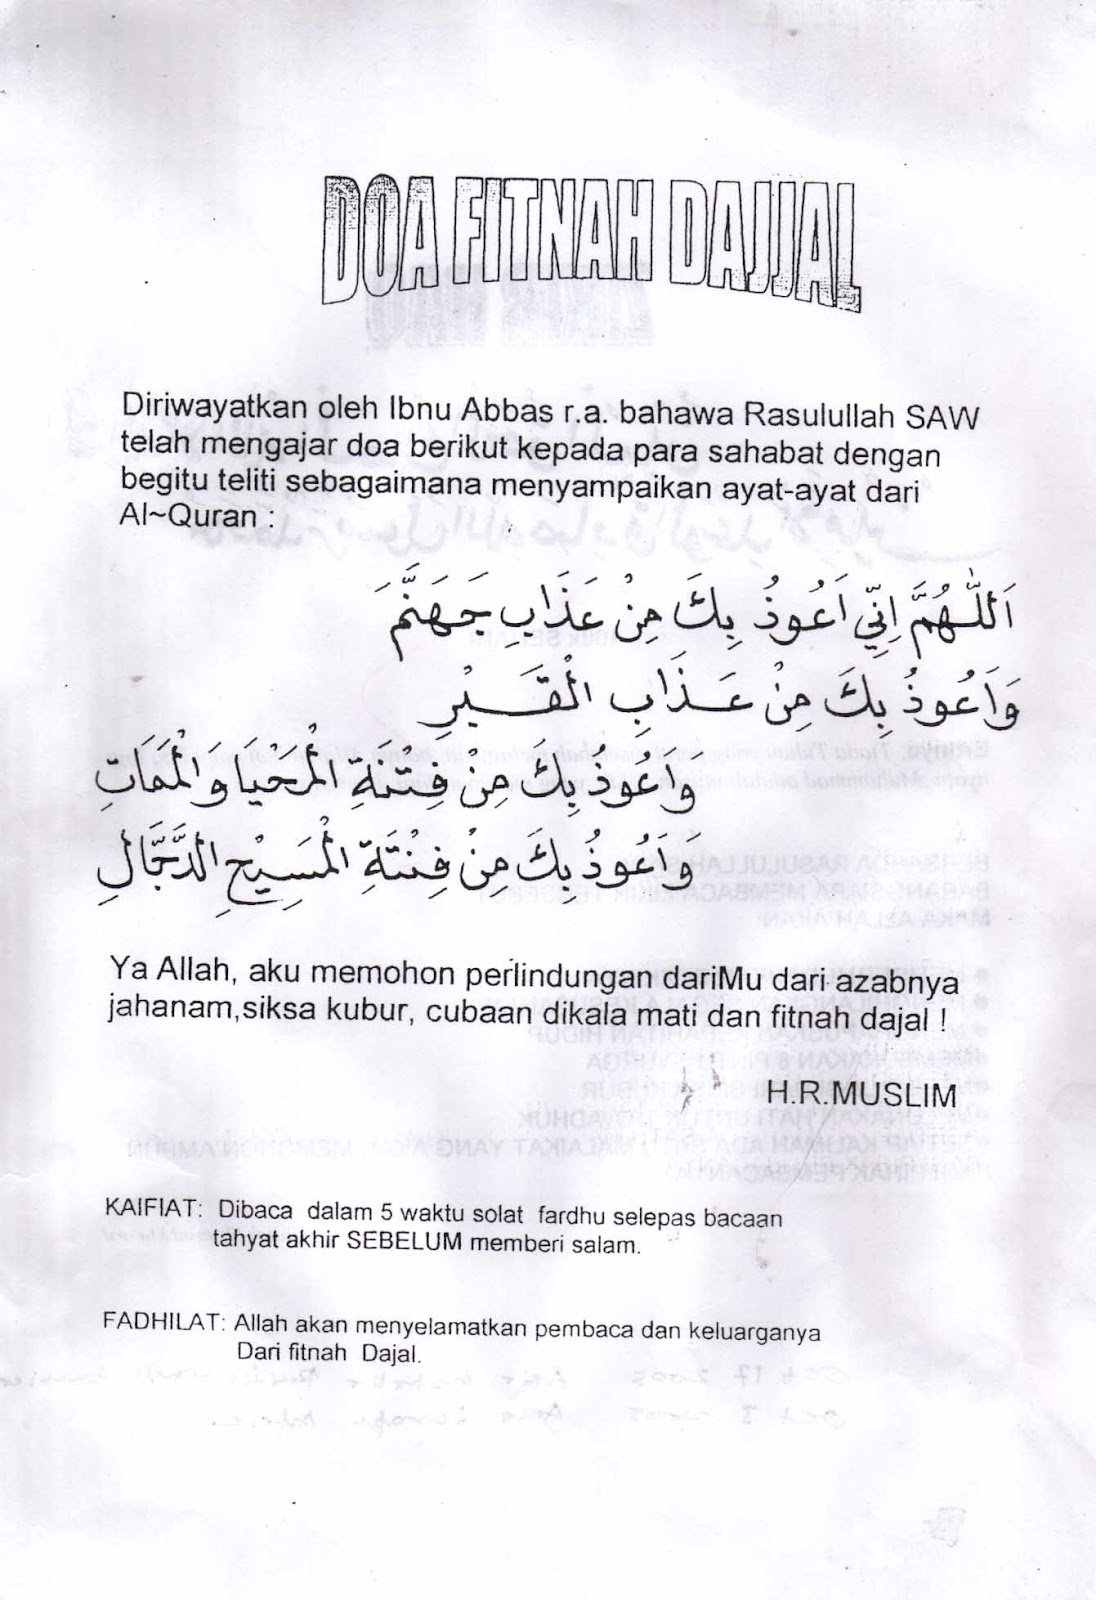 DOA FITNAH DAJJAL
Diriwayatkan oleh Ibnu Abbas r.a. bahawa Rasulullah SAW
telah mengajar doa berikut kepada para sahabat dengan
begitu teliti sebagaimana menyampaikan ayat-ayat dari
Al~Quran :
اَللّٰهُمَّ اِنِّي اَعُوذُ بِكَ مِنْ عَذَابِ جَهَنَّمَ
وَاَعُوذُ بِكَ مِنْ عَذَابِ الْقَبْرِ
وَاَعُوذُ بِكَ مِنْ فِتْنَةِ الْمَحْيَا وَالْمَمَاتِ
وَاَعُوذُ بِكَ مِنْ فِتْنَةِ الْمَسِيْحِ الدَّجَّالِ
Ya Allah, aku memohon perlindungan dariMu dari azabnya
jahanam,siksa kubur, cubaan dikala mati dan fitnah dajal !
H.R.MUSLIM
KAIFIAT: Dibaca dalam 5 waktu solat fardhu selepas bacaan
tahyat akhir SEBELUM memberi salam.
FADHILAT: Allah akan menyelamatkan pembaca dan keluarganya
Dari fitnah Dajal.